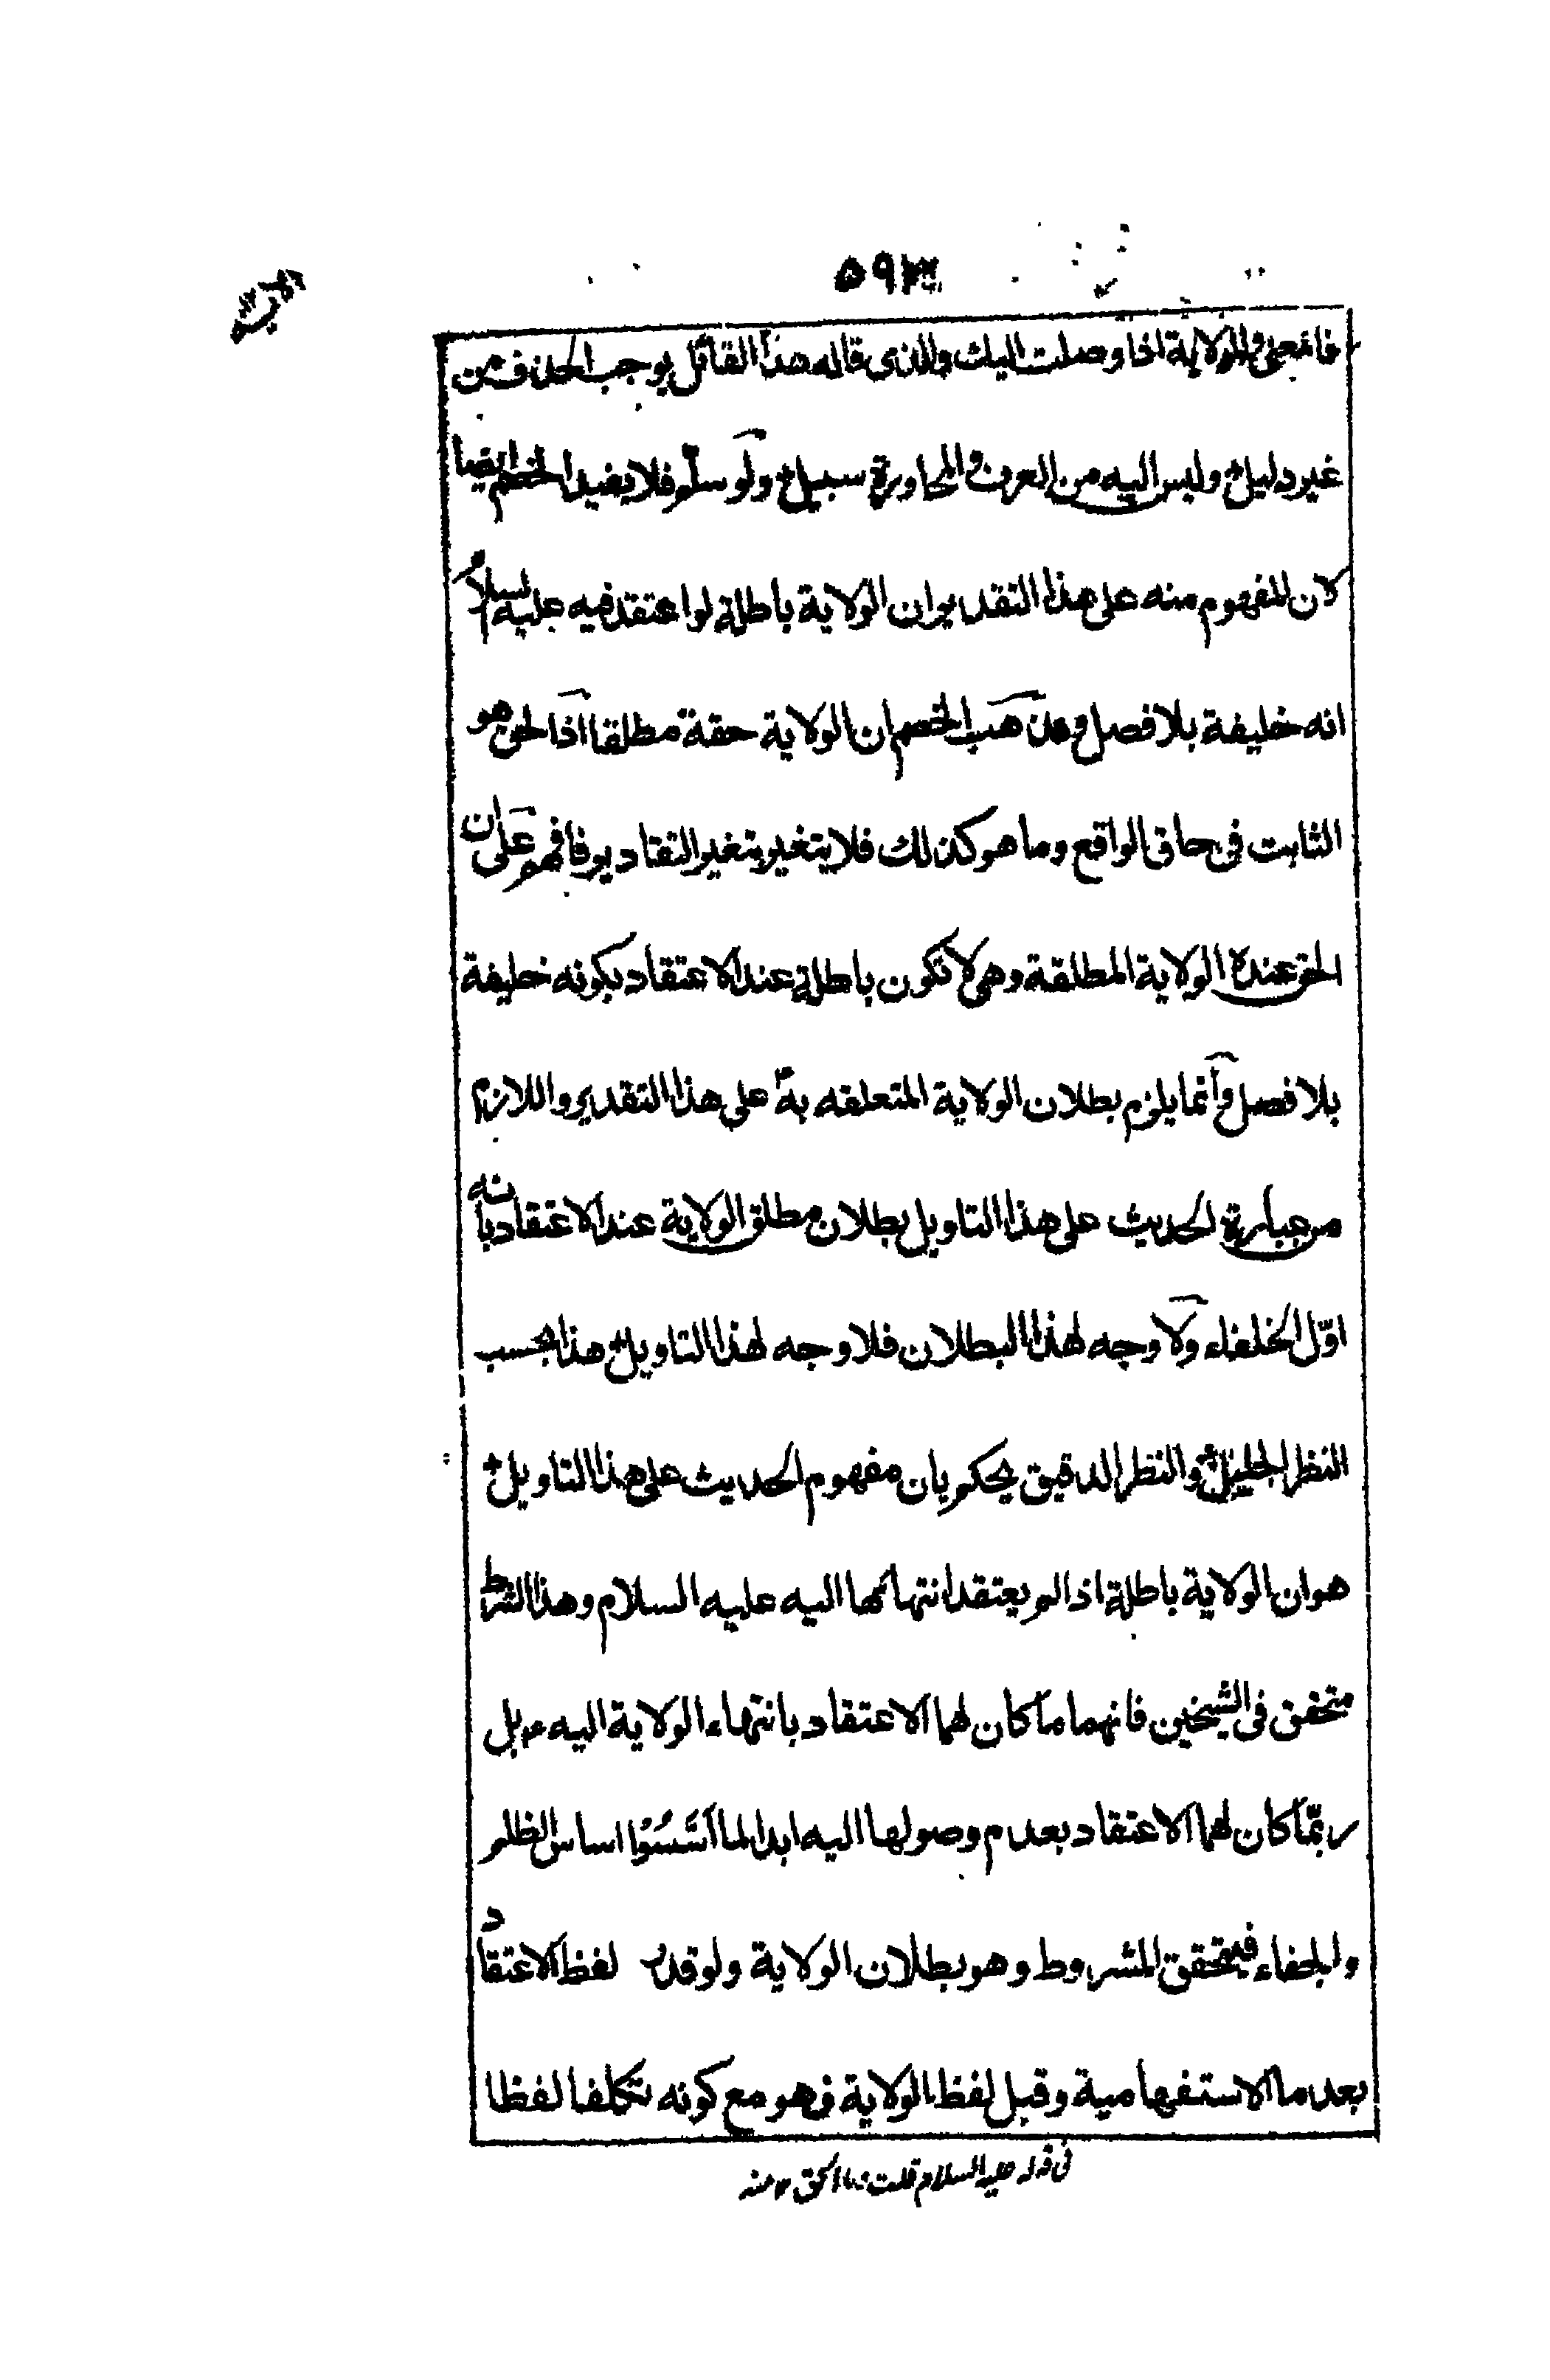 ٥٩٣
فامعنى الولاية اذا وصلت اليك والذى قاله هذا القائل يوجب الحذف من
غير دليل وليس اليه من العرف والمحاورة سبيل ولو سلم فلا يفيد الخصم ايضا
لان المفهوم منه على هذا التقدير ان الولاية باطلة لو اعتقد فيه عليه السلام
انه خليفة بلا فصل ومذهب الخصم ان الولاية حقة مطلقا اذا الحق هو
الثابت فى حاق الواقع وما هو كذلك فلا يتغير بتغير التقادير فافهم على ان
الحق عنده الولاية المطلقة وهى لا تكون باطلة عند الاعتقاد بكونه خليفة
بلا فصل وانما يلزم بطلان الولاية المتعلقه به على هذا التقدير واللازم
من عبارة الحديث على هذا التاويل بطلان مطلق الولاية عند الاعتقاد بانه
اوّل الخلفاء ولا وجه لهذا البطلان فلا وجه لهذا التاويل هذا بحسب
النظر الجليل والنظر الدقيق يحكم بان مفهوم الحديث على هذا التاويل
هو ان الولاية باطلة اذا لم يعتقد انتهائها اليه عليه السلام وهذا الشرط
متحقق فى الشيخين فانهما ما كان لهما الاعتقاد بانتهاء الولاية اليه ع بل
ربّما كان لهما الاعتقاد بعدم وصولها اليه ابدا لما اَسَّسُوْا اساس الظلم
والجفاء فيتحقق المشروط وهو بطلان الولاية ولو قدر لفظ الاعتقاد
بعد ما الاستفهامية وقبل لفظ الولاية فهو مع كونه تكلفا لفظا
فى قوله عليه السلام قلت ما الحق ١٢ منه